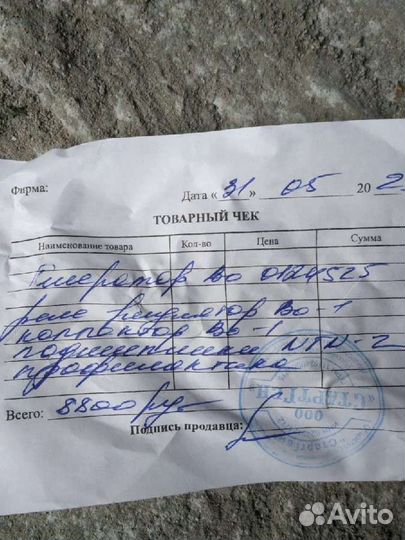 Фирма:
Дата « 31 » 05 20 2
ТОВАРНЫЙ ЧЕК
Наименование товара Кол-во Цена Сумма
Генератор Bo 0124525
реле регулятор Bo-1
колпаков Bo-1
подшипники NTN-2
профилактика
Всего: 8800 руб
Подпись продавца:
ООО
Avito